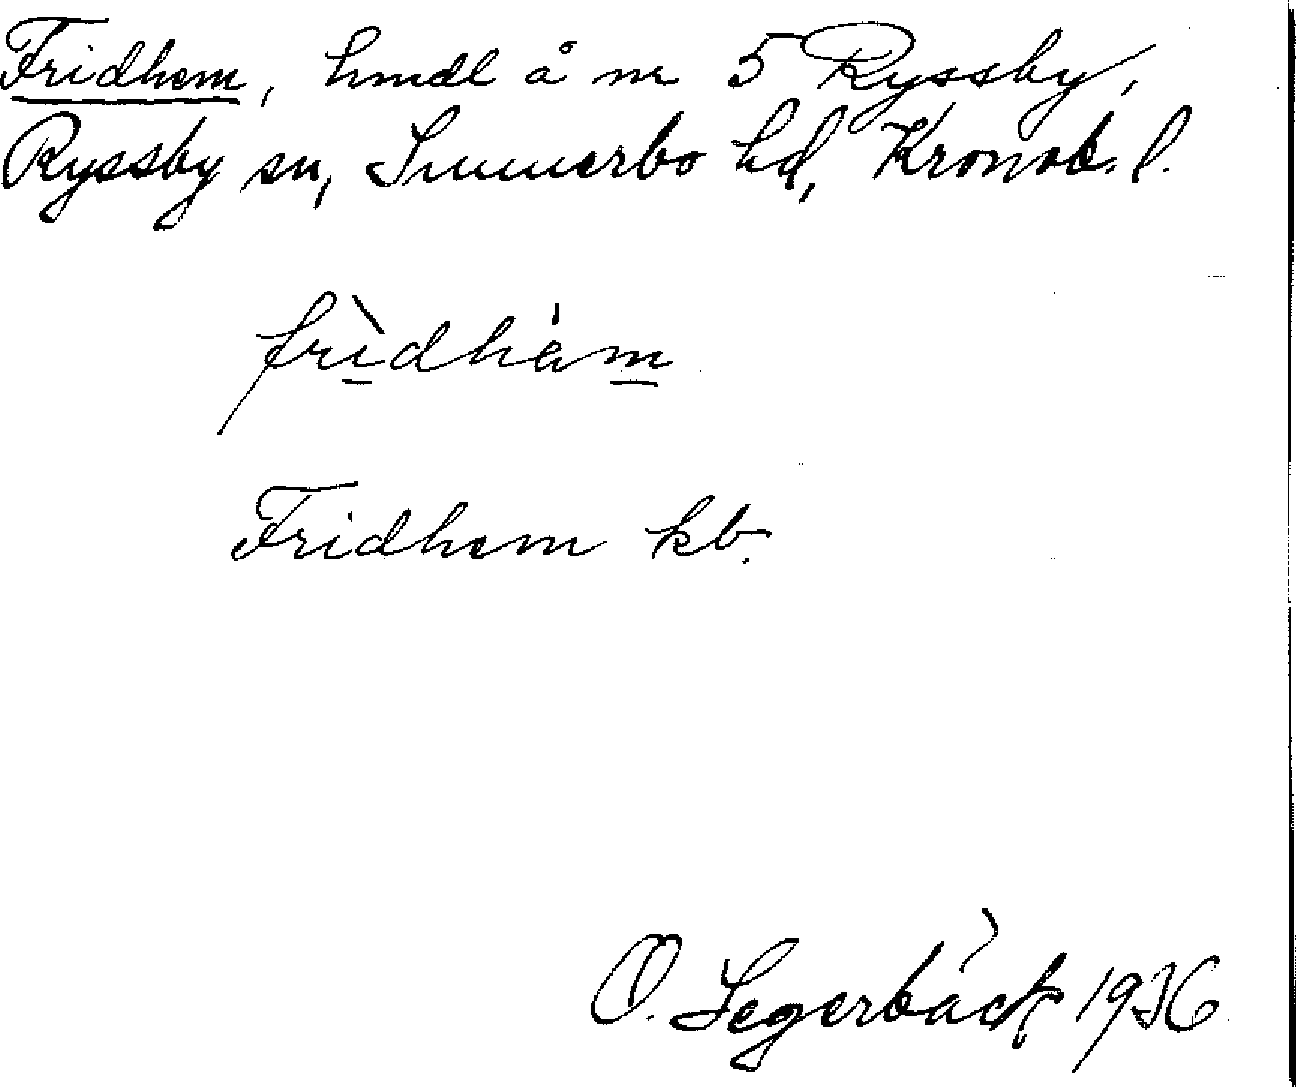 Fridhem, hmdl å nr 5 Ryssby,
Ryssby sn, Sunnerbo hd, Kronob. l.
frìdhém
Fridhem kb.
O. Segerbäck 1936